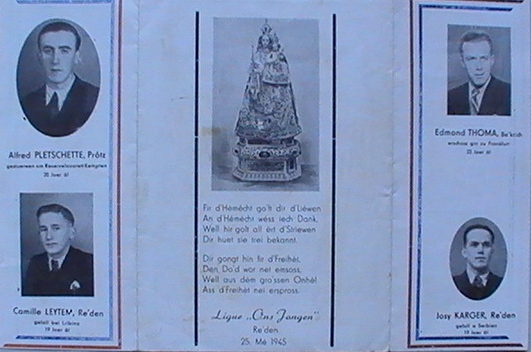 Alfred PLETSCHETTE, Prôtz
gestuerwen am Reservelazarett Kempten
20 Joer âl
Camille LEYTEM, Re'den
gefall bei Lribinx
19 Joer âl
Fir d'Hémécht go'ft dir d'Liéwen
An d'Hémécht wéss iech Dank,
Well hir golt all ért d'Striewen
Dir huet sie trei bekannt.
Dir gongt hin fir d'Freihét,
Den Do'd war net emsoss,
Well aus dem gro'ssen Onhél
Ass d'Freihét nei erspross.
Ligue „Ons Jongen"
Re'den
25. Mé 1945
Edmond THOMA,
erschoss gin zu Frankfurt
Josy KARGER, Re'den
gefall a Serbien
19 Joer âl